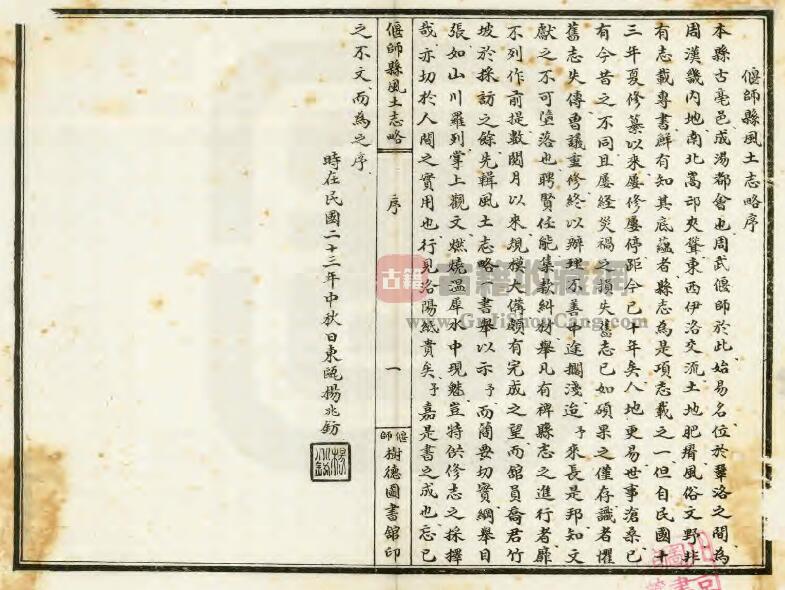 偃師縣風土志略序
本縣古亳邑成湯都會也周武偃師於此始易名位於鞏洛之間為
周漢畿內地南北嵩邙夾聳東西伊洛交流土地肥瘠風俗文野非
有志載專書鮮有知其底蘊者縣志為是項志載之一但自民國十
三年夏修纂以來屢修屢停距今已十年矣人地更易世事滄桑已
有今昔之不同且屢經災禍之頻失舊志已如碩果之僅存識者懼
舊志失傳曾議重修終以辦理不善中途擱淺迨予來長是邦知文
獻之不可墮落也聘賢任能集款糾材舉凡有裨縣志之進行者靡
不列作前提數閱月以來規模大備頗有完成之望而館員喬君竹
坡於採訪之餘先輯風土志略一書舉以示予而簡要切實綱舉目
張如山川羅列掌上觀文燃燒溫犀水中現魅豈特供修志之採擇
哉亦切於人間之實用也行見洛陽紙貴矣予嘉是書之成也忘已
偃師縣風土志略
序
一
偃師樹德圖書館印
之不文而為之序
時在民國二十三年中秋日東甌楊兆鈁
古籍收藏網
www.GuJiShouCang.com